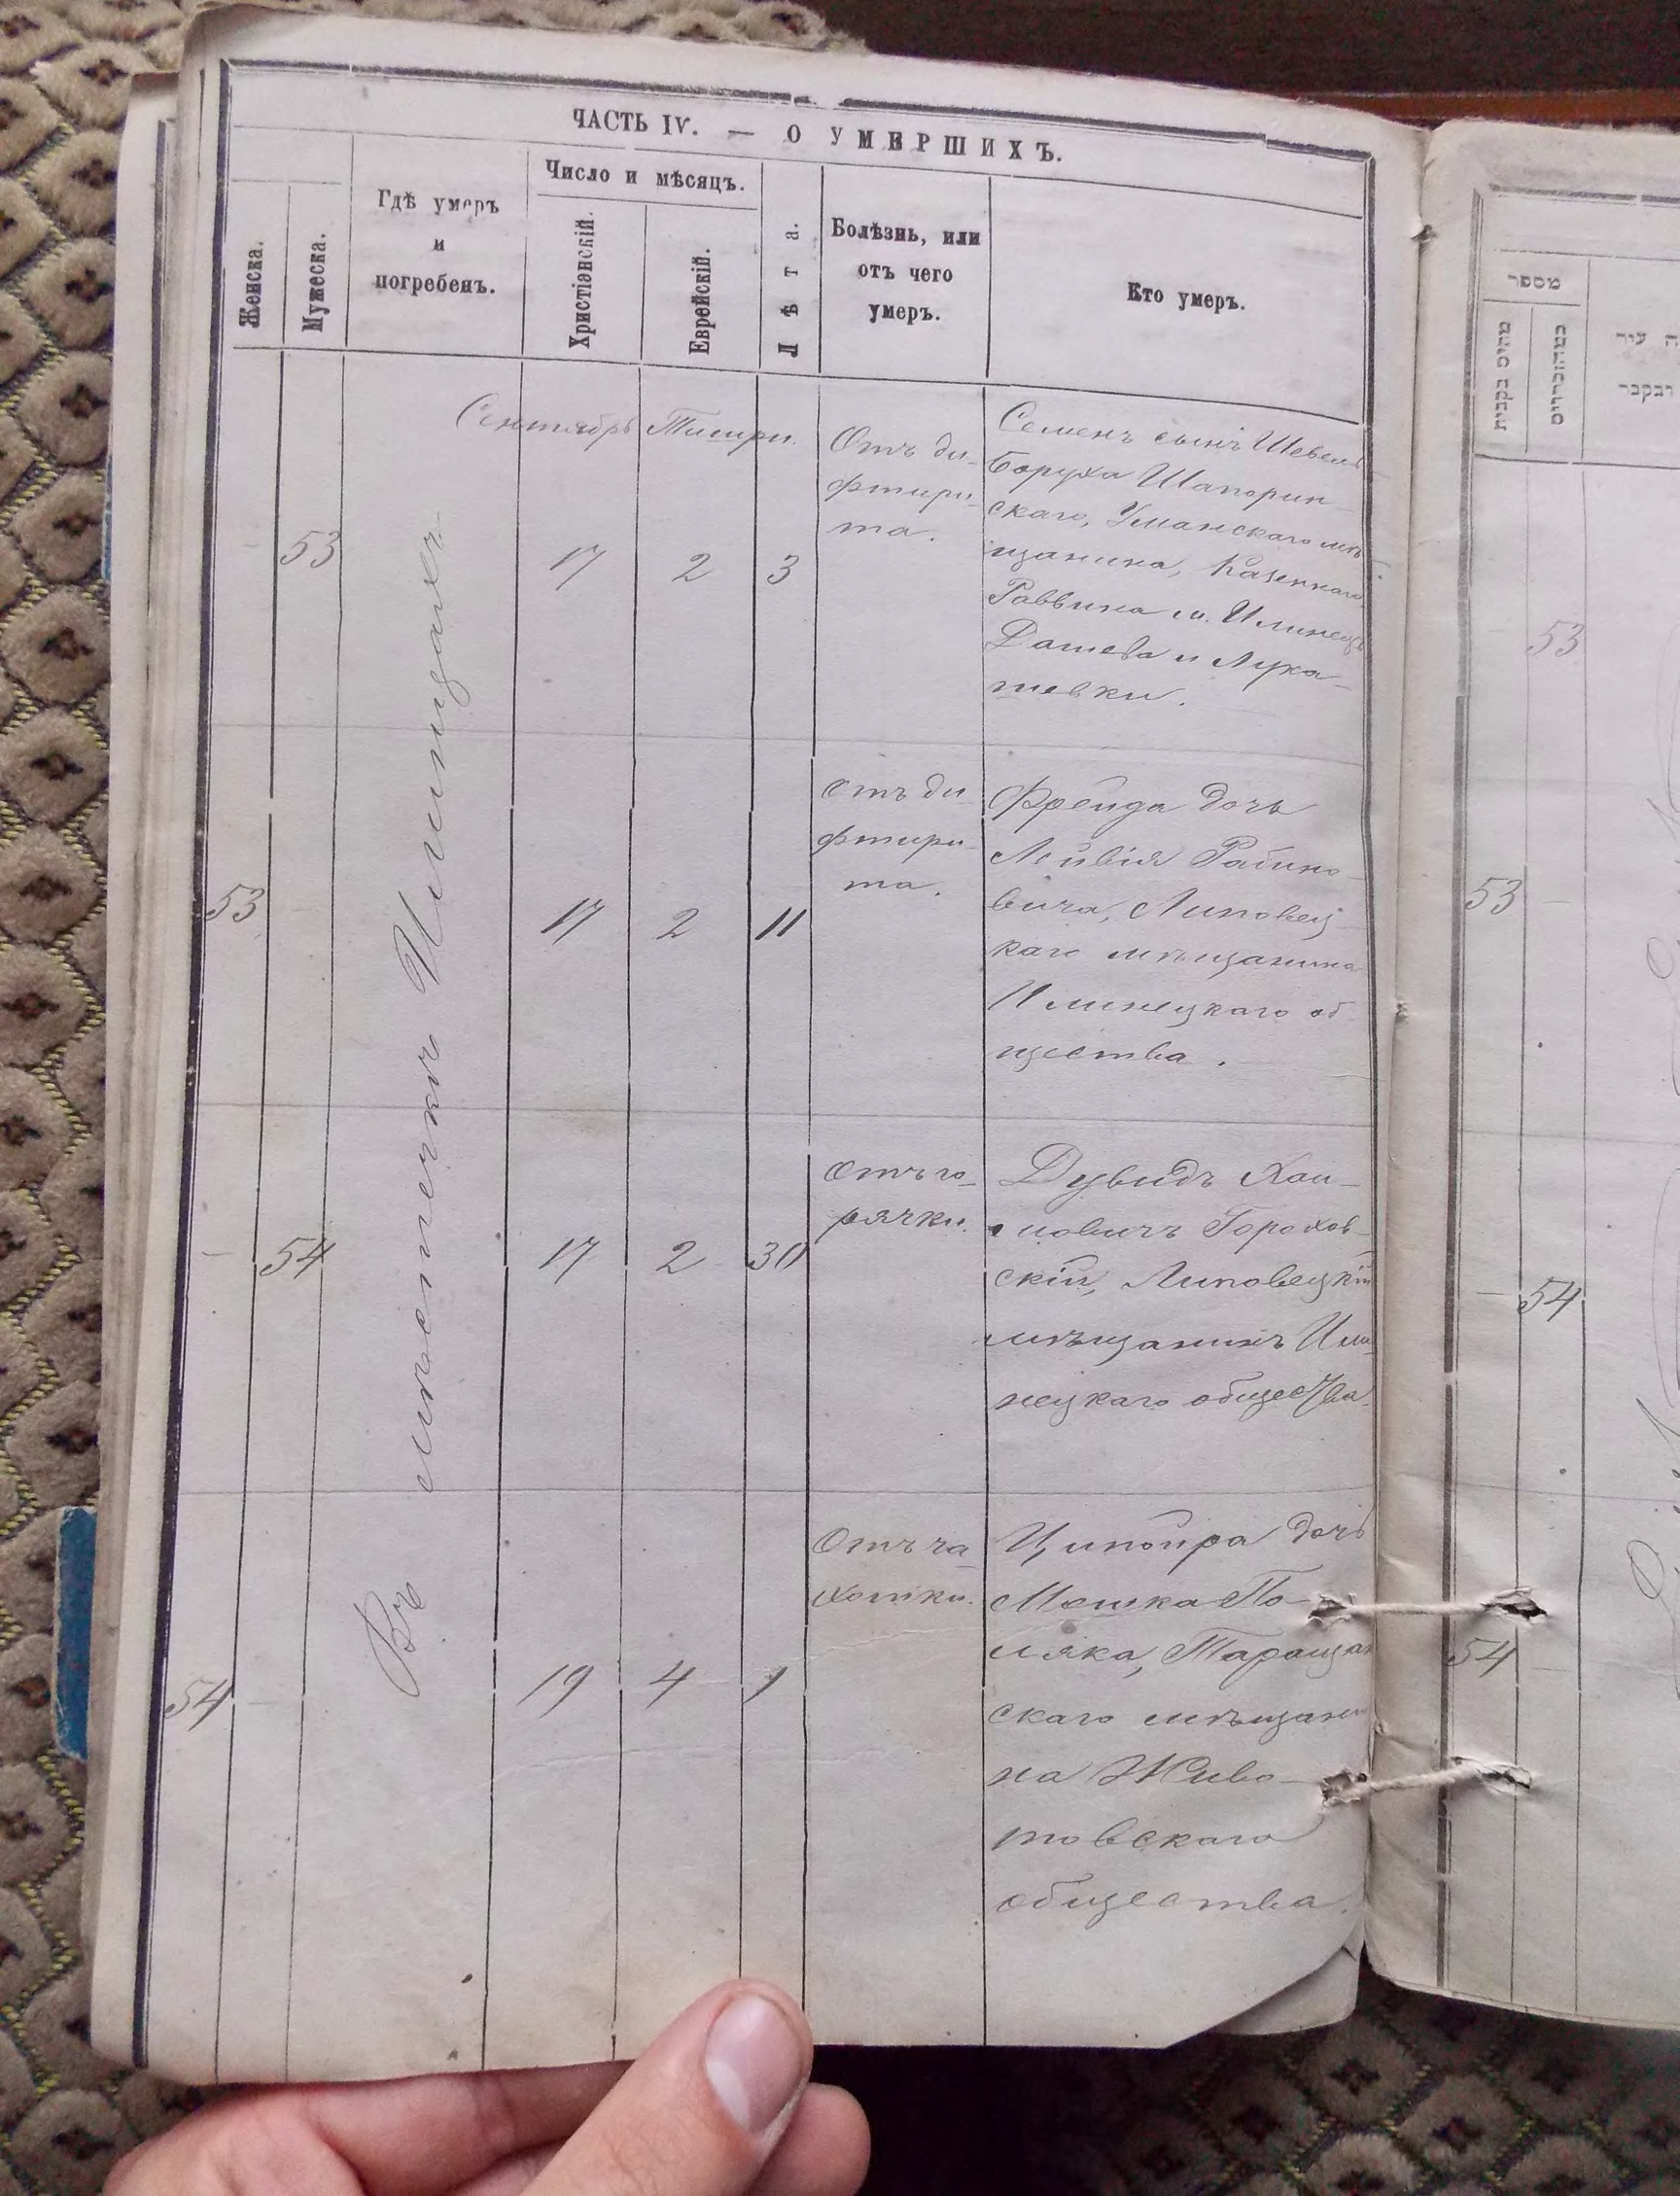 ЧАСТЬ IV. — О УМЕРШИХЪ.
Женска.
Мужеска.
Гдѣ умеръ
и
погребенъ.
Число и мѣсяцъ.
Христіенскій.
Еврейскій.
Лѣта.
Болѣзнь, или
отъ чего
умеръ.
Кто умеръ.
Въ мѣстечкѣ Илинцахъ
Сентябрь Тишри.
53
17
2
3
Отъ ди-
фтири-
та.
Семенъ сынъ Шевель
Боруха Шапорин
скаго, Уманскаго мѣ
щанина, Казеннаго
Раввина м. Илинецъ
Дашева и Лука-
шевки.
53
17
2
11
Отъ ди
фтири-
та.
Фрейда дочь
Лейвія Рабино-
вича, Липовец
каго мѣщанина
Илинецкаго об
щества.
54
17
2
30
Отъ го-
рячки.
Дувидъ Хаи-
мовичъ Горохов-
скій, Липовецкій
мѣщанинъ Или-
нецкаго общества.
54
19
4
1
Отъ ча-
хотки.
Ципойра дочь
Мошка По-
ляка, Таращан
скаго мѣщани
на Живо-
товскаго
общества.
מספר
עיר
53
53
54
54